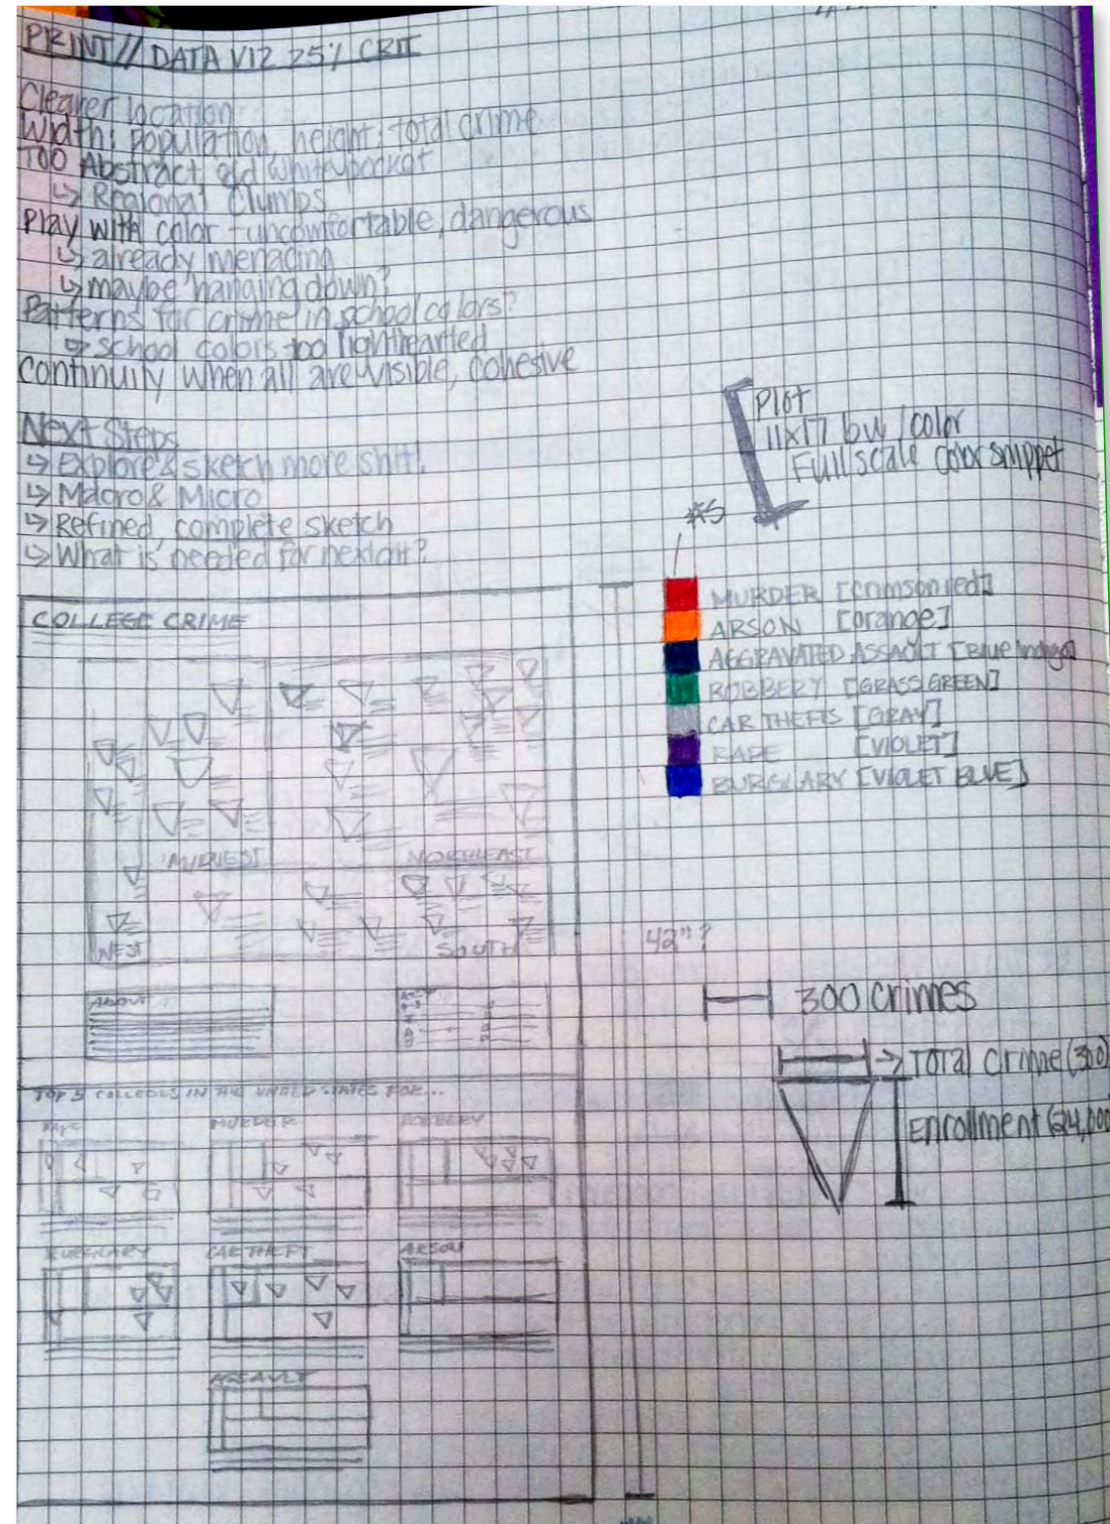 PRINT // DATA VIZ 25% CRIT
Clearer location
Width: population, height: total crime
TOO Abstract, old whiteypocket
↳ Regional Clumps
Play with color - uncomfortable, dangerous
↳ already menacing
↳ maybe hanging down?
Patterns for crime in school colors?
↳ school colors too lighthearted
Continuity when all are visible, cohesive
Next Steps
↳ Explore & sketch more shit!
↳ Macro & Micro
↳ Refined, complete sketch
↳ What is needed for next crit?
Plot
11x17 bw/color
Full scale color snippet
*5
MURDER [crimson red]
ARSON [orange]
AGGRAVATED ASSAULT [Blue Indigo]
ROBBERY [GRASS GREEN]
CAR THEFTS [GRAY]
RAPE [VIOLET]
BURGLARY [VIOLET BLUE]
COLLEGE CRIME
MIDWEST
NORTHEAST
WEST
SOUTH
42"?
ABOUT
300 crimes
→ Total Crime (300)
Enrollment (24,000
TOP 5 COLLEGES IN THE UNITED STATES FOR...
RAPE
MURDER
ROBBERY
BURGLARY
CAR THEFT
ARSON
ASSAULT